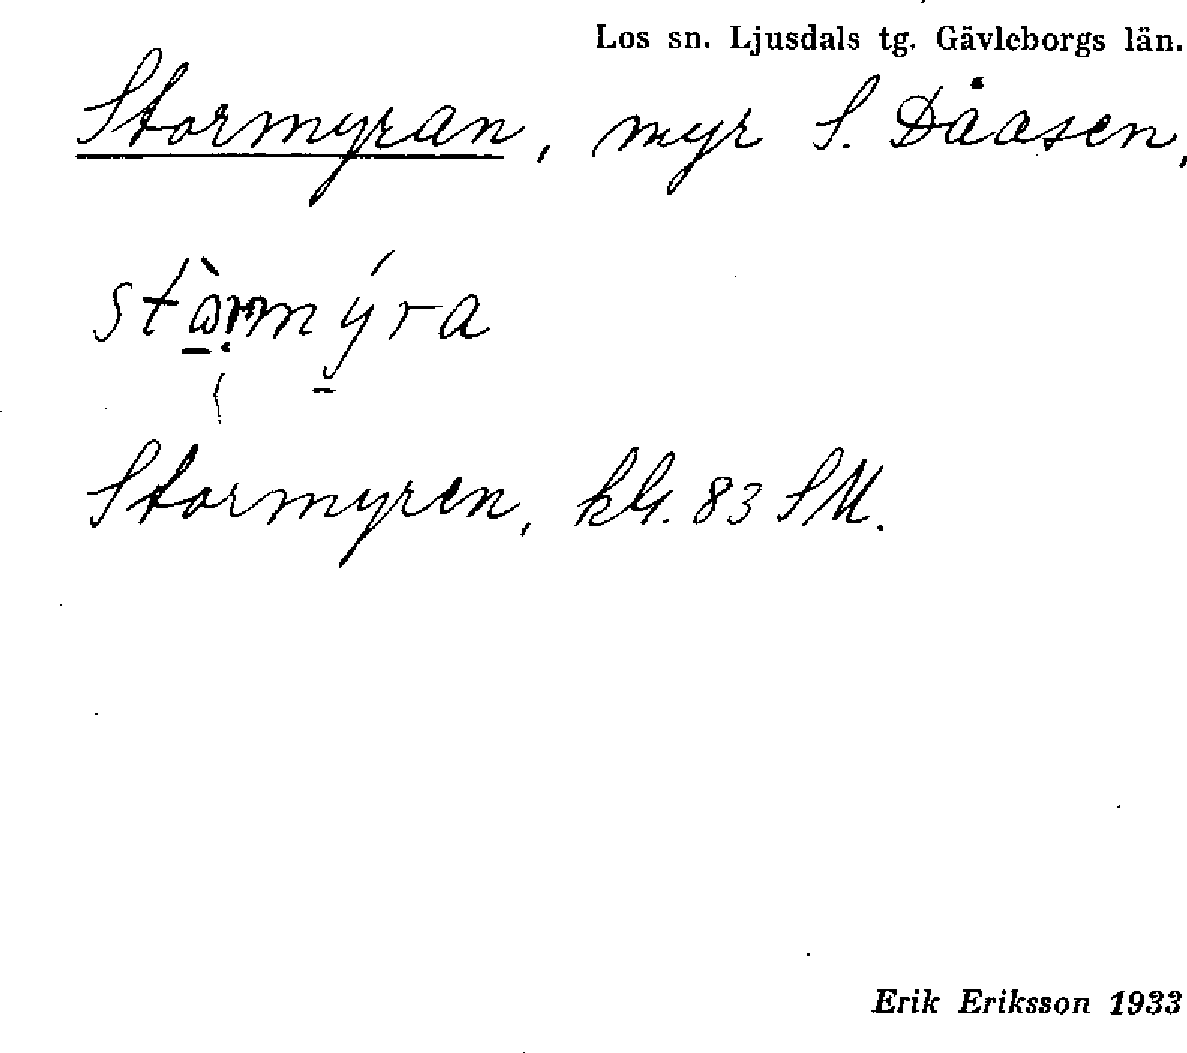 Los sn. Ljusdals tg. Gävleborgs län.
Stormyran, myr S. Dåasen,
Stormyren, kbl. 83 SM.
Erik Eriksson 1933